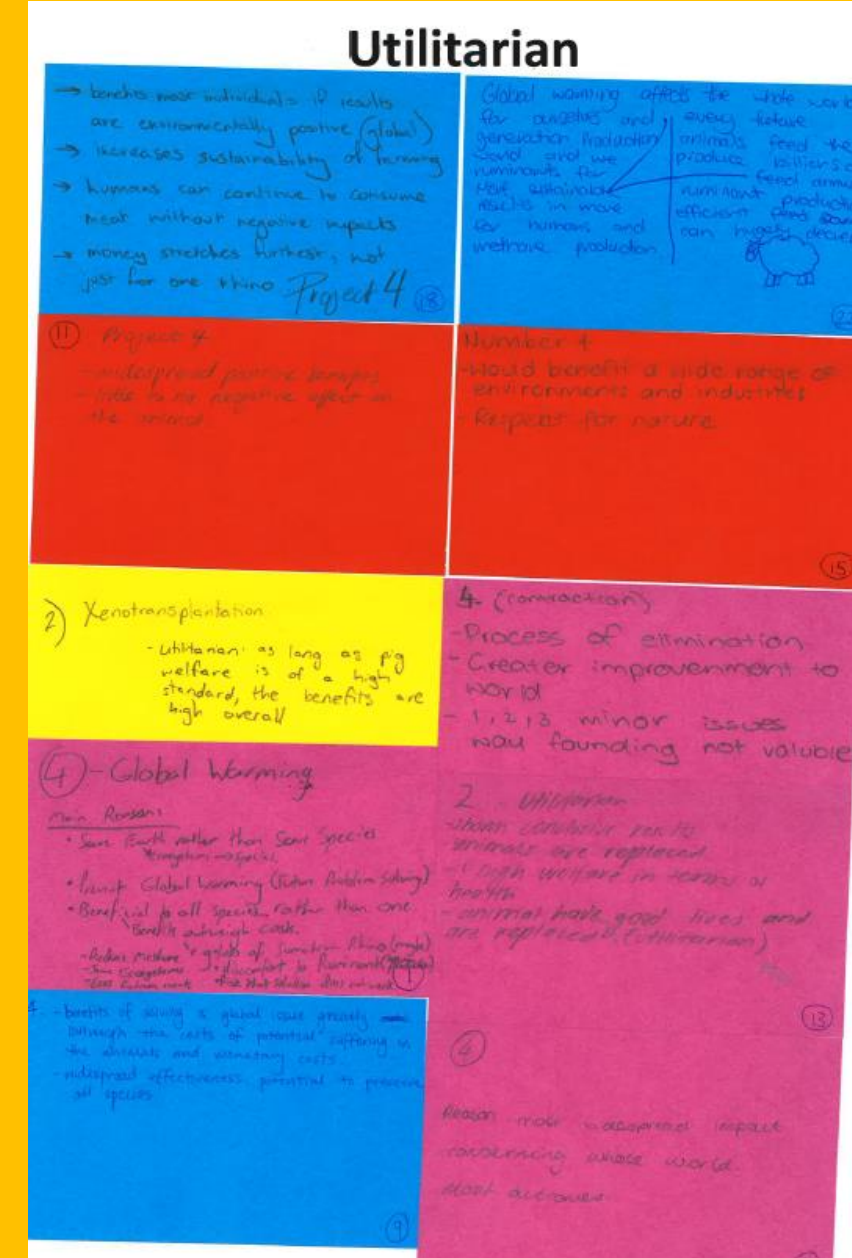 Utilitarian
→ benefits most individuals if results
are environmentally positive (global)
→ increases sustainability of farming
→ humans can continue to consume
meat without negative impacts
→ money stretches furthest, not
just for one rhino Project 4 18
Global warming affects the whole world
for ourselves and every future
generation Production animals feed the
world and we produce billions of
ruminants for feed
More sustainable ruminant production
results in more efficient feed
for humans and can hugely
methane production
22
11 Project 4
- widespread positive benefits
- little to no negative effect on
the animal
Number 4
- Would benefit a wide range of
environments and industries
- Respect for nature
15
2) Xenotransplantation
- Utilitarian: as long as pig
welfare is of a high
standard, the benefits are
high overall
4 (contraction)
- Process of elimination
- Greater improvenment to
world
- 1, 2, 3 minor issues
founding not valuble
4 - Global Warming
Main Reasons
• Save Earth rather than Save Species
• Prevent Global Warming (Future Problem Solving)
• Beneficial to all species rather than one.
Benefits outweigh costs.
- Reduces Methane
- Save Ecosystems
1
2 Utilitarian
animals are replaced
- high welfare in terms of
health
- animal have good lives and
are replaced. (Utilitarian)
13
4. - benefits of solving a global issue greatly
outweigh the costs of potential suffering in
the animals and monetary costs
- widespread effectiveness, potential to preserve
all species
9
4
Reason most widespread impact
concerning whole world.